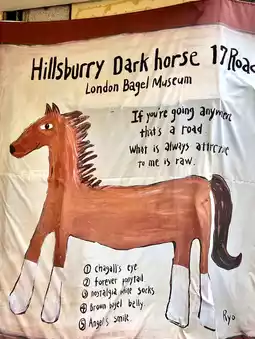 Hillsburry Dark horse 17 Road
London Bagel Museum
If you're going anywhere
that's a road
What is always attractive
to me is raw.
① chagall's eye
② forever ponytail
③ nostalgia white socks
④ Brown bagel belly.
⑤ Angel's smile.
Ryo